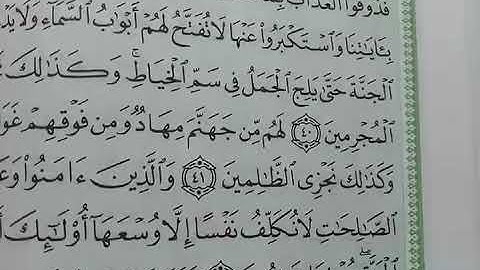 فَذُوقُوا۟ ٱلْعَذَابَ
بِـَٔايَـٰتِنَا وَٱسْتَكْبَرُوا۟ عَنْهَا لَا تُفَتَّحُ لَهُمْ أَبْوَٰبُ ٱلسَّمَآءِ وَلَا
ٱلْجَنَّةَ حَتَّىٰ يَلِجَ ٱلْجَمَلُ فِى سَمِّ ٱلْخِيَاطِ ۚ وَكَذَٰلِكَ
ٱلْمُجْرِمِينَ ٤٠ لَهُم مِّن جَهَنَّمَ مِهَادٌ وَمِن فَوْقِهِمْ
وَكَذَٰلِكَ نَجْزِى ٱلظَّـٰلِمِينَ ٤١ وَٱلَّذِينَ ءَامَنُوا۟
ٱلصَّـٰلِحَـٰتِ لَا نُكَلِّفُ نَفْسًا إِلَّا وُسْعَهَآ أُو۟لَـٰٓئِكَ